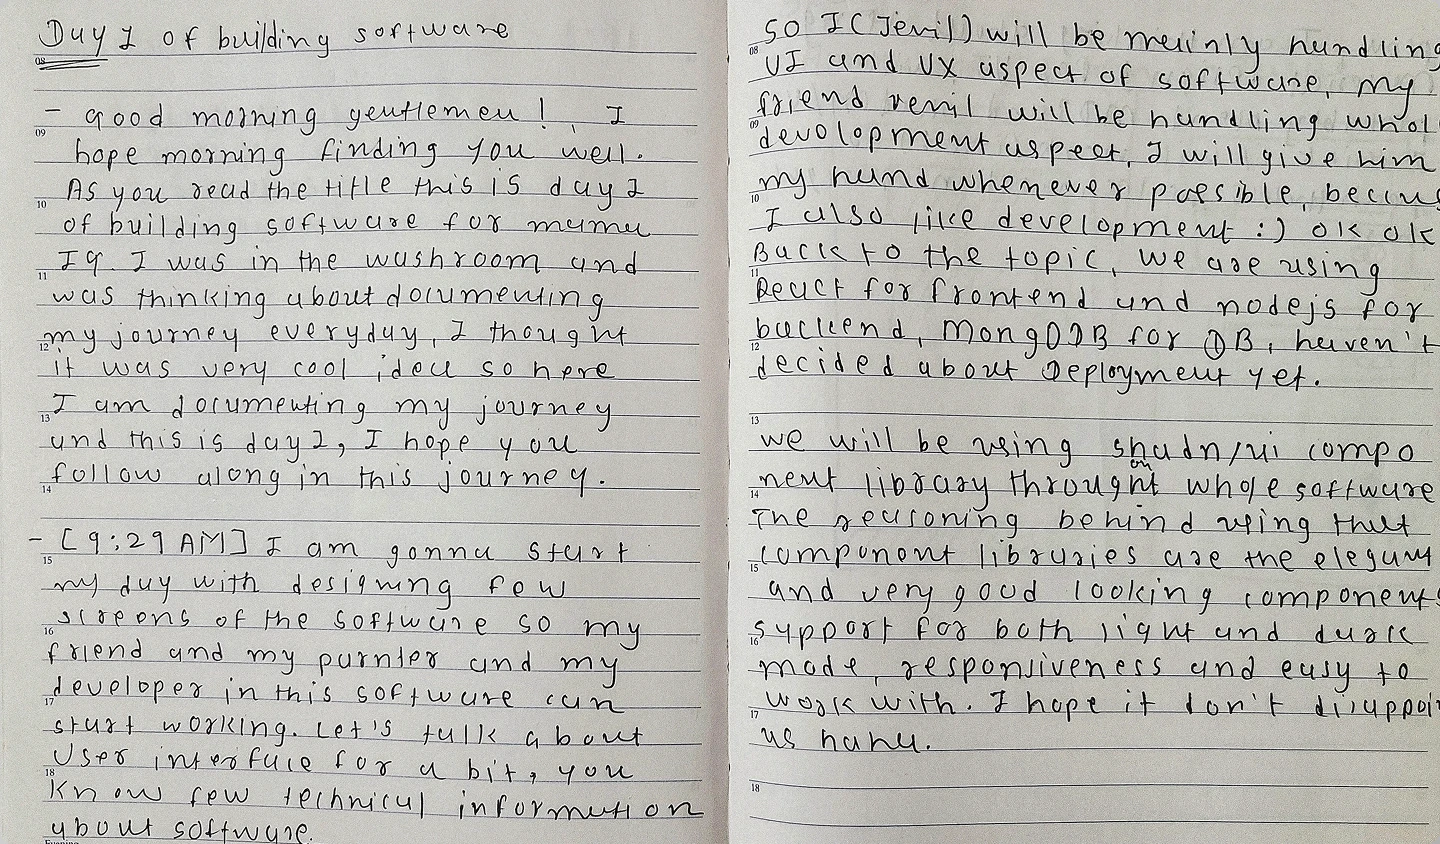 Day 1 of building software
- Good morning gentlemen! I
hope morning finding you well.
As you read the title this is day 1
of building software for mamu
I was in the washroom and
was thinking about documenting
my journey everyday, I thought
it was very cool idea so here
I am documenting my journey
and this is day 1, I hope you
follow along in this journey.
- [9:29 AM] I am gonna start
my day with designing few
screens of the software so my
friend and my parnter and my
developer in this software can
start working. Let's talk about
User interface for a bit, you
know few technical information
about software.
So I (Jenil) will be mainly handling
UI and UX aspect of software, my
friend will be handling whol
devolopment aspect, I will give him
my hand whenever possible, becaus
I also like development :) ok ok
Back to the topic, we are using
React for frontend and nodejs for
backend, MongoDB for DB, haven't
decided about Deployment yet.
we will be using shadn/ui compo
nent library throught whole software
on
The reasoning behind using that
component libraries are the elegant
and very good looking components
support for both light and dark
mode, responsiveness and easy to
work with. I hope it don't disappoi
us haha.